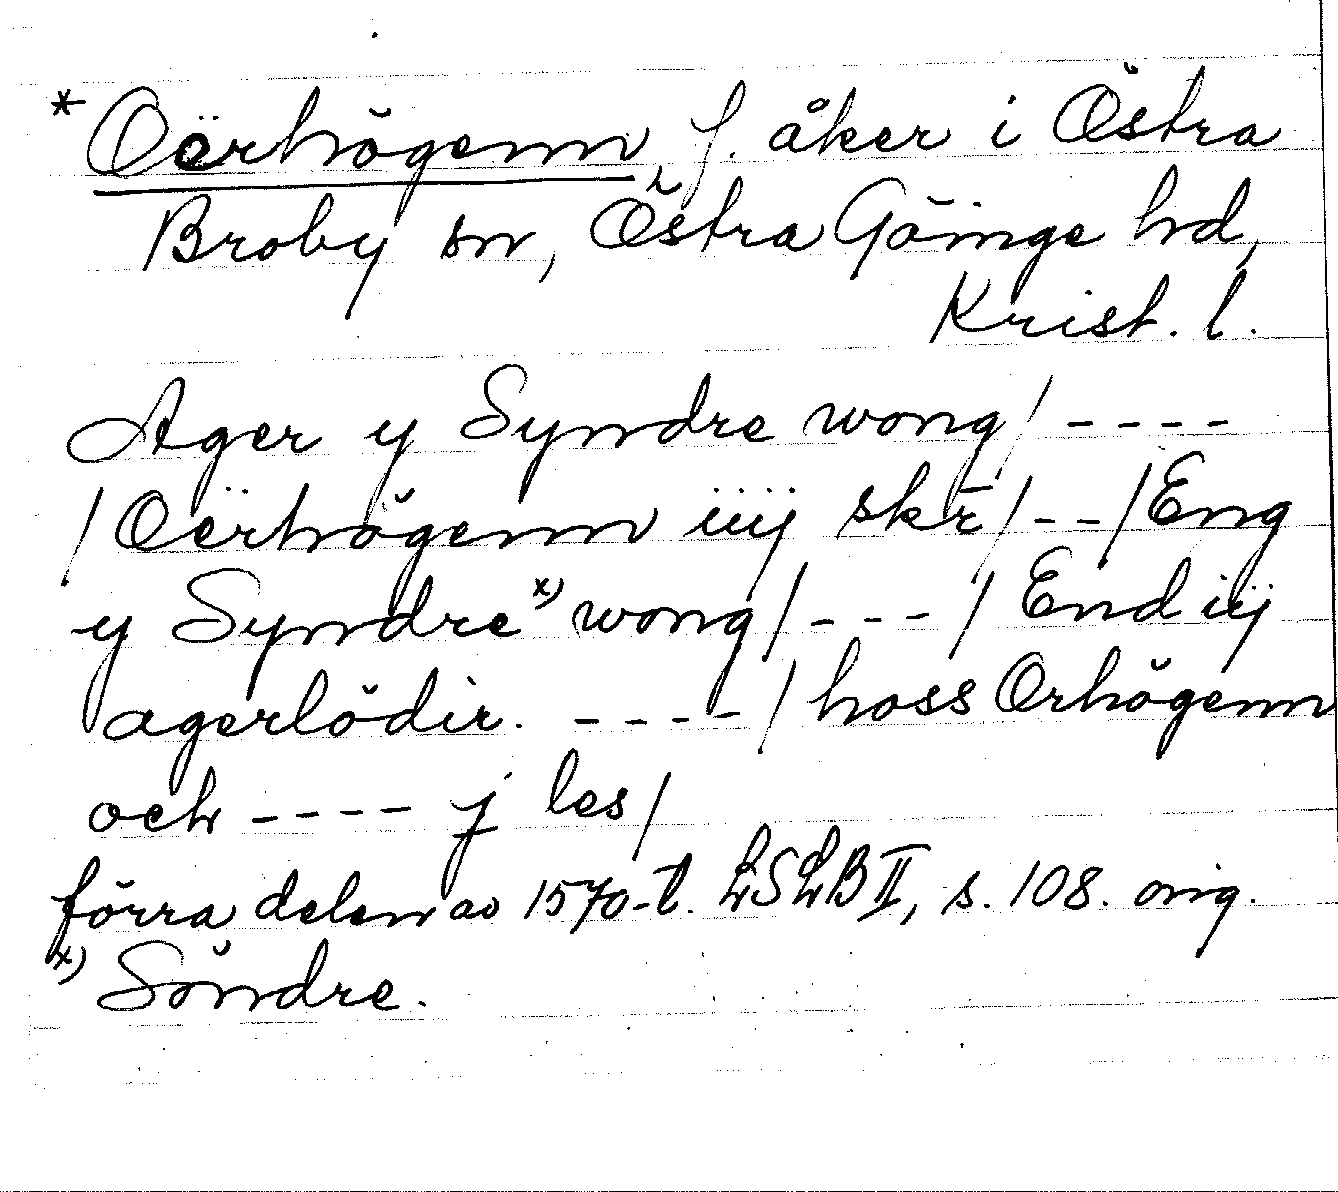 * Oërhögenn, f. åker i Östra
Broby sn, Östra Göinge hd,
Krist. l.
Ager y Syndre wong/ ----
/Oërhögenn iiij skr̄/--/Eng
y Syndre x) wong/---/ End iij
agerlödir. ----/hoss Orhögenn
och ---- j les/
förra delen av 1570-t. LSLB II, s. 108. orig.
x) Söndre.